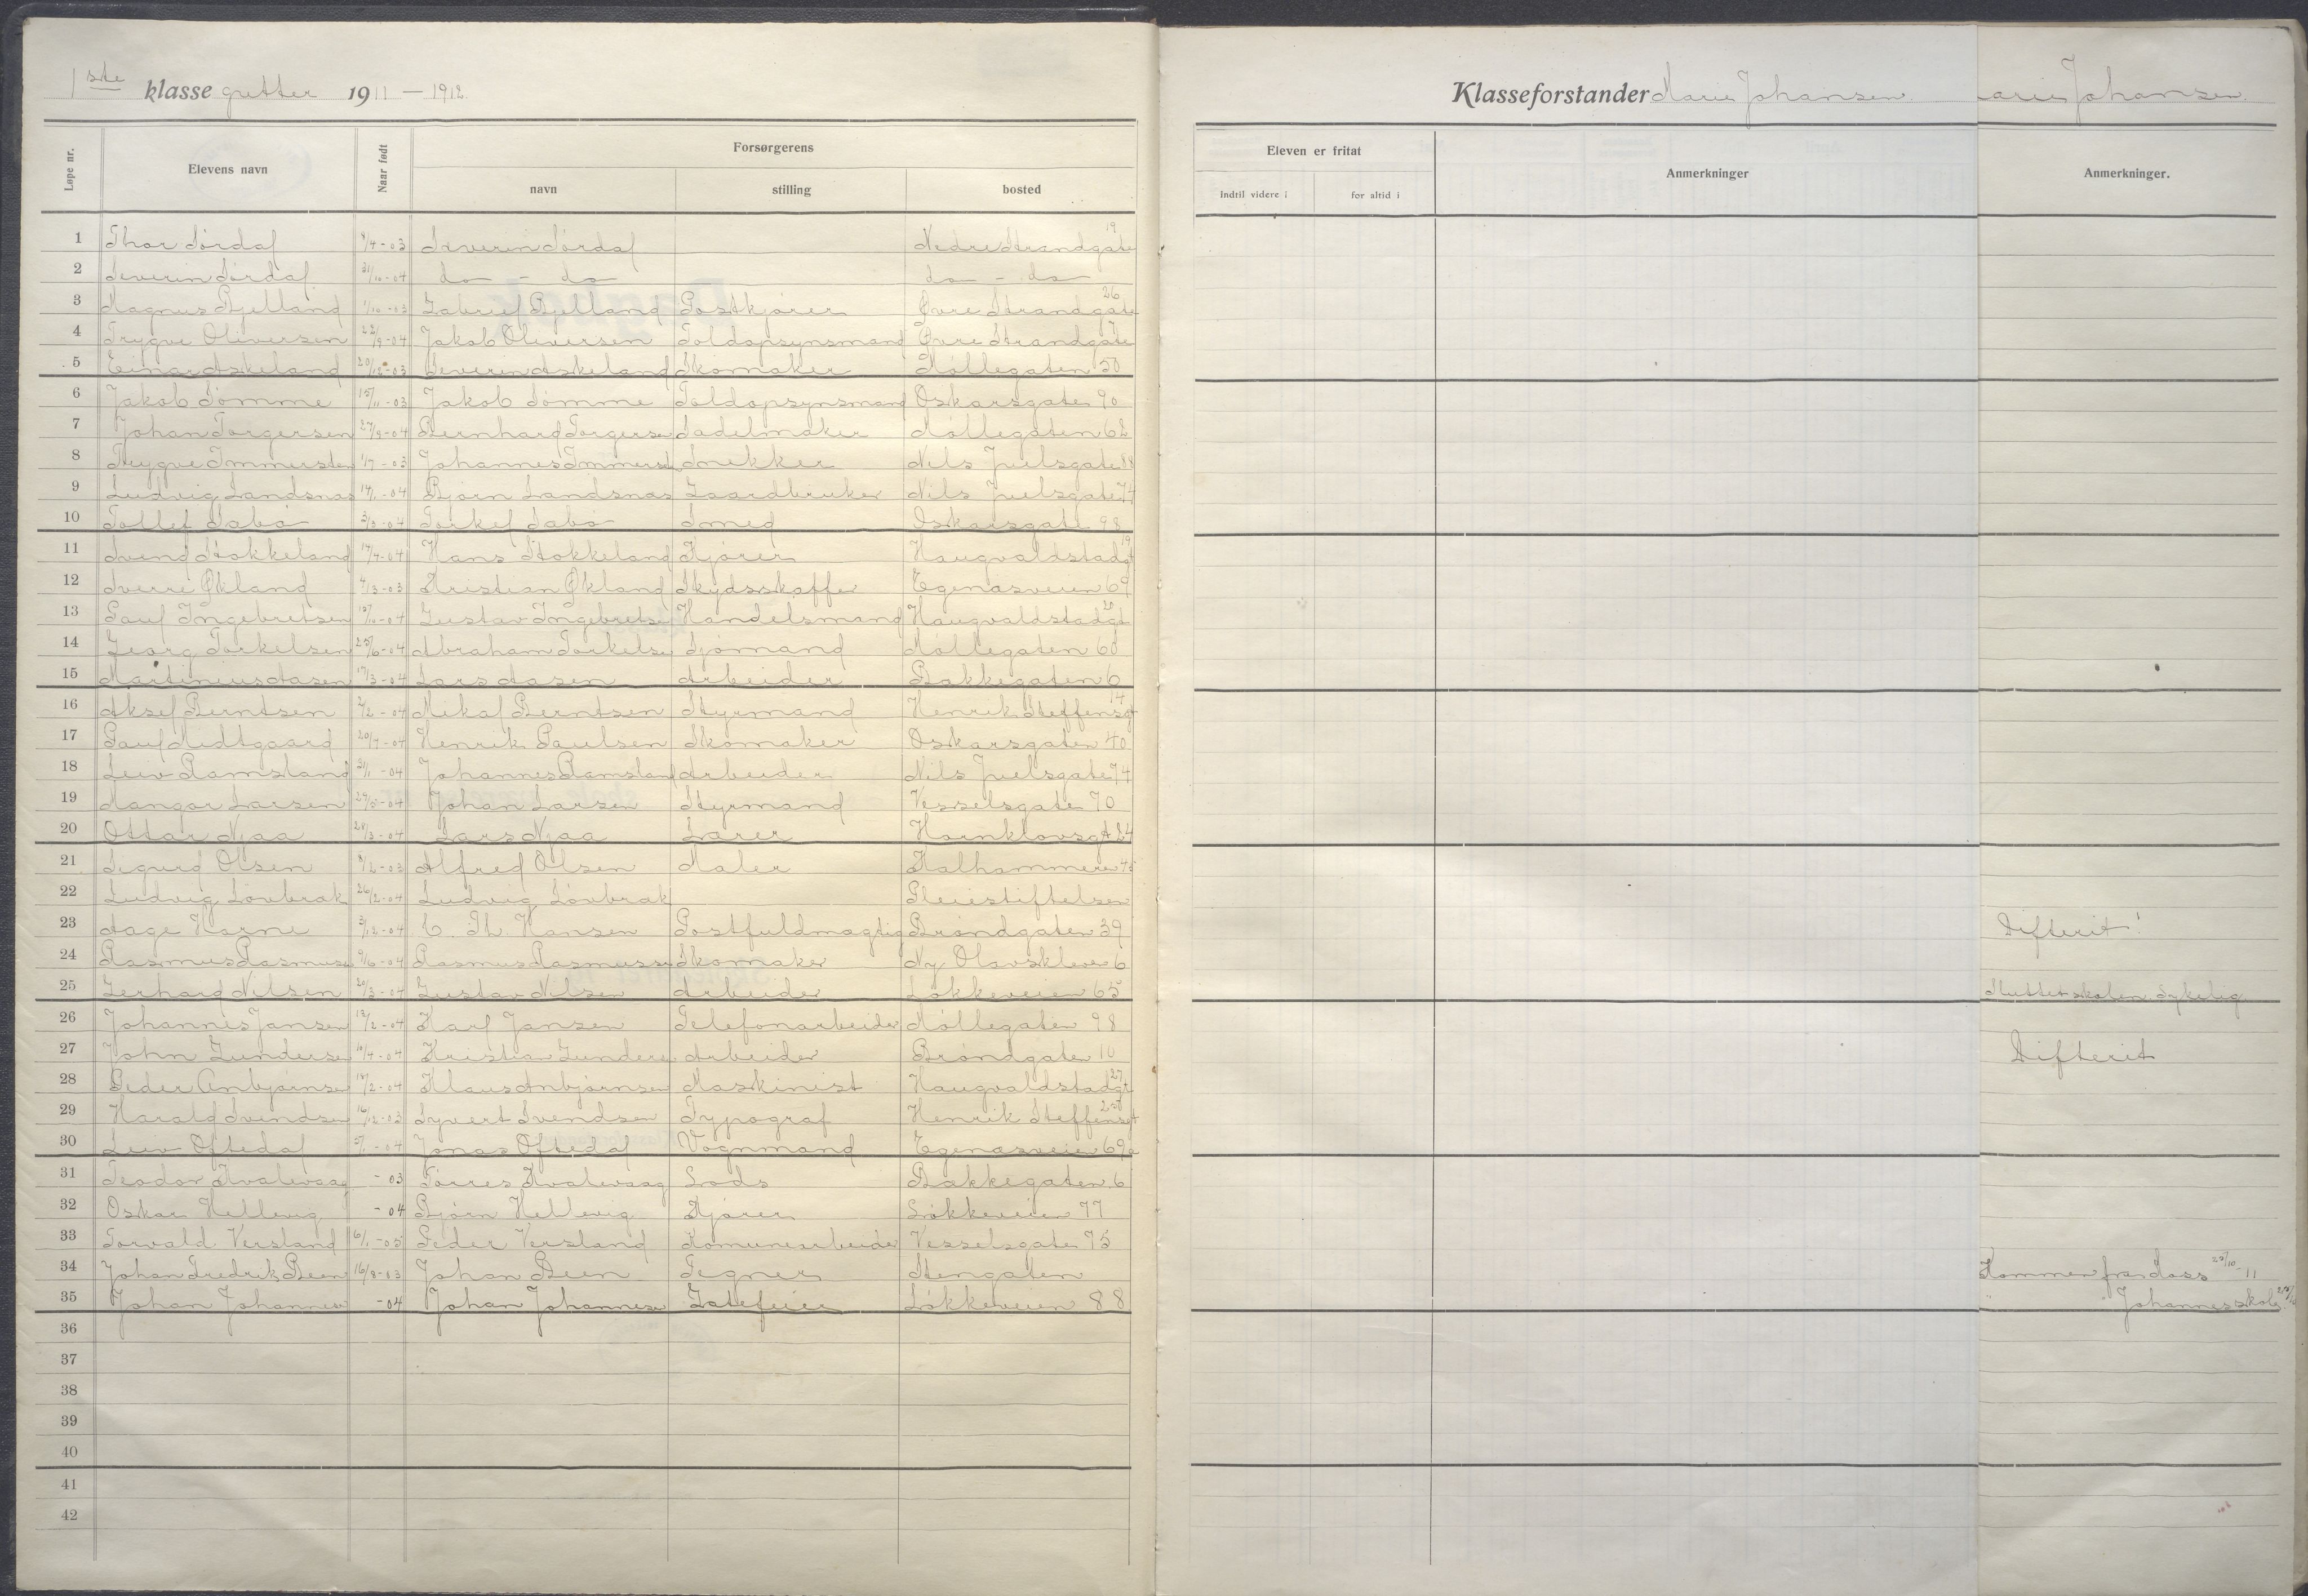 1ste klasse gutter 1911 — 1912
Løpe nr. Elevens navn Naar født Forsørgerens
navn stilling bosted
1 Thor Sørdal 8/4-03 Severin Sørdal Nedre Strandgate 19
2 Severin Sørdal 31/10-04 do - do do - do
3 Magnus Bjelland 1/10-03 Gabriel Bjelland Postkjører Øvre Strandgate 26
4 Trygve Oliversen 22/9-04 Jakob Oliversen Toldopsynsmand Øvre Strandgate
5 Einar Askeland 20/12-03 Severin Askeland Skomaker Møllegaten 50
6 Jakob Sømme 15/11-03 Jakob Sømme Toldopsynsmand Oskarsgaten 90
7 Johan Torgersen 27/9-04 Bernhard Torgersen Sadelmaker Møllegaten 62
8 Trygve Immersten 1/7-03 Johannes Immerst Snekker Nils Juelsgate 88
9 Ludvig Landsnas 14/1-04 Bjørn Landsnas Gaardbruker Nils Juelsgate 74
10 Tollef Sabø 3/3-04 Torkel Sabø Smed Oskarsgate 98
11 Svend Stokkeland 17/7-04 Hans Stokkeland Kjører Haugvaldstadgt 19
12 Sverre Økland 4/3-03 Kristian Økland Skydsskaffer Egenasveien 69
13 Paul Ingebretsen 15/10-04 Gustav Ingebretse Handelsmand Haugvaldstadgt 20
14 Georg Torkelsen 25/6-04 Abraham Torkelse Sjømand Møllegaten 60
15 Martinius Aasen 17/3-04 Lars Aasen Arbeider Bakkegaten 6
16 Aksel Berntsen 2/2-04 Mikal Berntsen Styrmand Henrik Steffensgt 14
17 Paul Midtgaard 20/7-04 Henrik Paulsen Skomaker Oskarsgaten 40
18 Leiv Ramsland 31/1-04 Johannes Ramsland Arbeider Nils Juelsgate 74
19 Mangor Larsen 29/5-04 Johan Larsen Styrmand Vesselsgate 70
20 Ottar Njaa 28/3-04 Lars Njaa Lærer Hornklovsgt 24
21 Sigurd Olsen 8/12-03 Alfred Olsen Maler Kalhammeren 45
22 Ludvig Løvbrak 26/2-04 Ludvig Løvbrak Pleiestiftelsen
23 Aage Horne 3/12-04 C. Th. Hansen Postfuldmagtig Brøndgaten 39
24 Rasmus Rasmusse 9/6-04 Rasmus Rasmussen Skomaker Ny Olavskleve 6
25 Gerhard Nilsen 20/3-04 Gustav Nilsen Arbeider Løkkeveien 65
26 Johannes Jansen 12/2-04 Karl Jansen Telefonarbeider Møllegaten 98
27 John Gundersen 10/4-04 Kristian Gunderse Arbeider Brøndgaten 10
28 Peder Anbjørnsen 12/2-04 Klaus Anbjørnsen Maskinist Haugvaldstadgt 27
29 Harald Svendsen 16/12-03 Syvert Svendsen Typograf Henrik Steffensgt
30 Leiv Oftedal 5/1-04 Jonas Oftedal Vognmand Egenasveien 69a
31 Teodor Kvalevaag -03 Tørres Kvalevaag Lods Bakkegaten 6
32 Oskar Hellevig -04 Bjørn Hellevig Kjører Løkkeveien 77
33 Torvald Versland 6/1-05 Peder Versland Komunearbeider Vesselsgate 75
34 Johan Fredrik Been 16/8-03 Johan Been Tegner Stengaten
35 Johan Johannes -04 Johan Johannesen Gatefeier Løkkeveien 88
36
37
38
39
40
41
42
Klasseforstander Marie Johansen arie Johansen.
Eleven er fritat Anmerkninger Anmerkninger.
Indtil videre i for altid i
Difterit!
Sluttet skolen. Sykelig
Difterit
Kommen fra 25/10-11
" Johannes skole